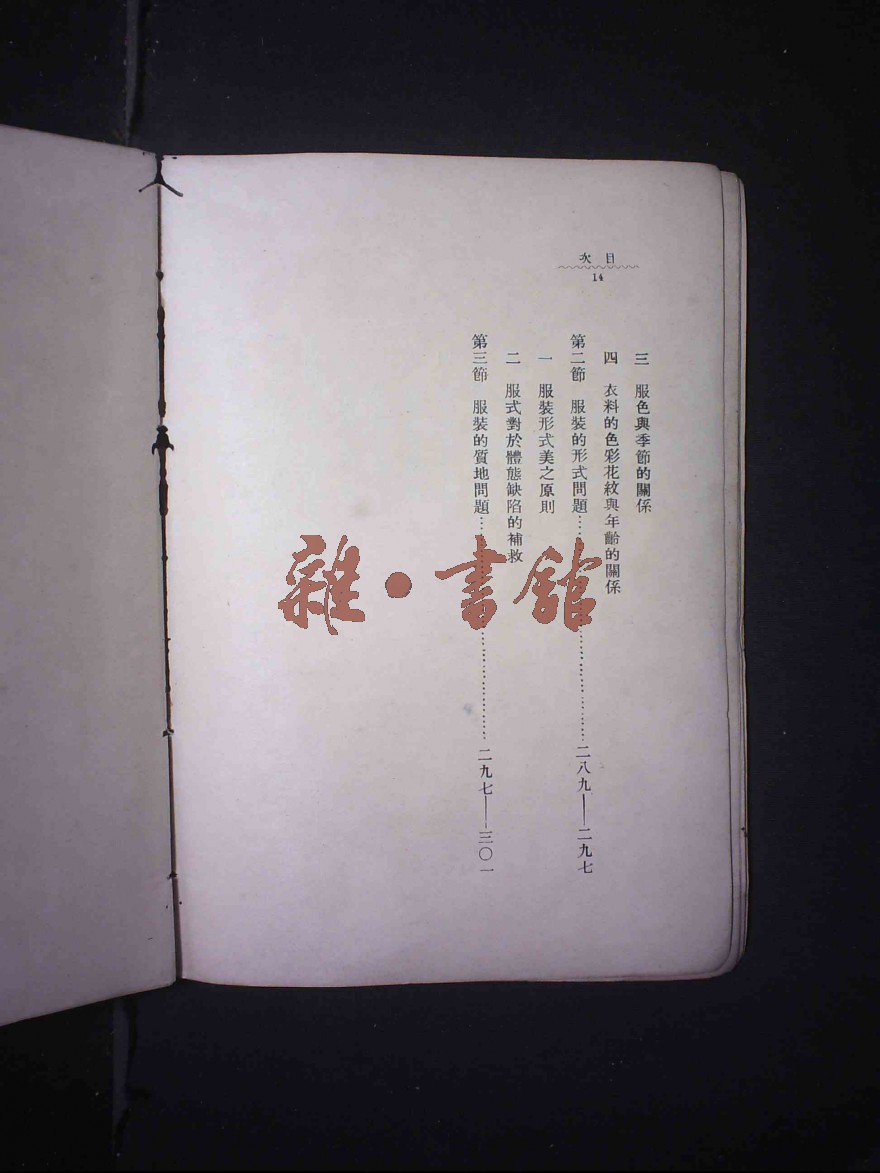 次目
14
三　服色與季節的關係
四　衣料的色彩花紋與年齡的關係
第二節　服裝的形式問題……二八九——二九七
一　服裝形式美之原則
二　服式對於體態缺陷的補救
第三節　服裝的質地問題……二九七——三〇一
雜·書館